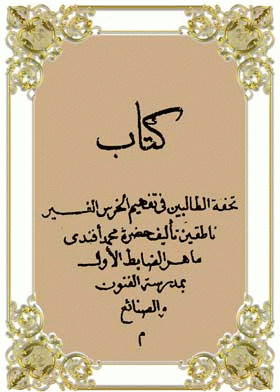 كتاب
تحفة الطالبين فى تفهيم الخرس الغير
ناطقين تأليف حضرة محمد أفندى
ماهر الضابط الأول
بمدرسة الفنون
والصنائع
م